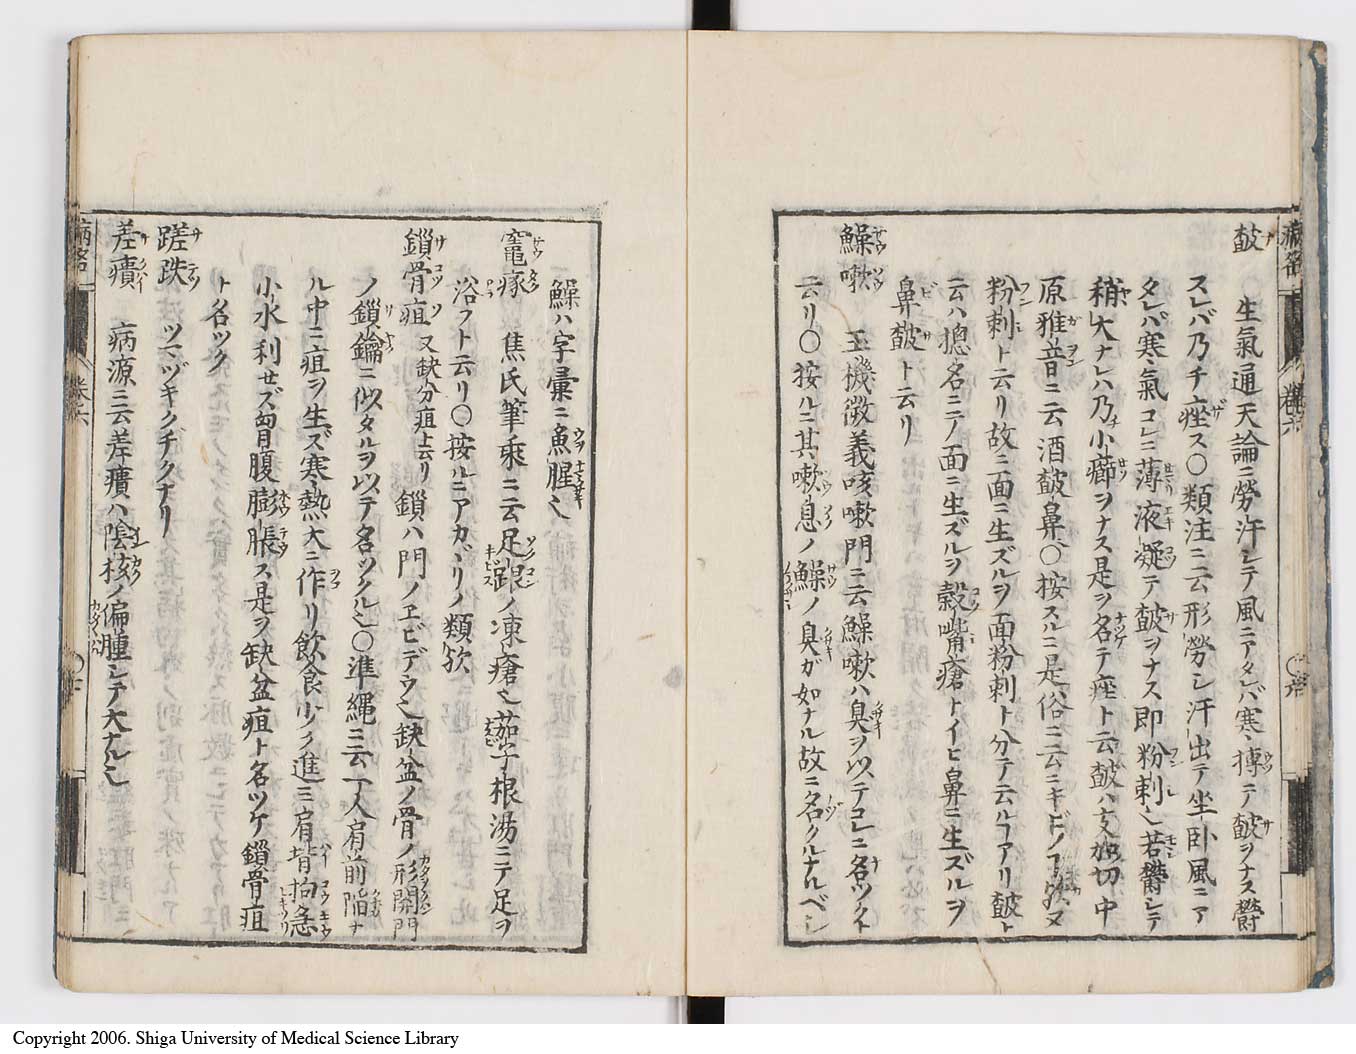 皶 生氣通天論ニ勞汗シテ風ニアタレバ寒搏テ皶ヲナス欝
スレバ乃チ痤ス〇類注ニ云形勞シ汗出テ坐卧風ニア
タレバ寒氣コレニ薄液凝テ皶ヲナス即粉刺也若欝シテ
稍大ナレハ乃小癤ヲナス是ヲ名テ痤ト云皶ハ支加切中
原雅音ニ云酒皶鼻〇按スルニ是俗ニ云ニキビノ
粉刺ト云リ故ニ面ニ生ズルヲ面粉刺ト分テ云アリ皶ト
云ハ摠名ニノ面ニ生ズルヲ穀嘴瘡トイヒ鼻ニ生ズルヲ
鼻皶ト云リ
鱢嗽 玉機微義咳嗽門ニ云鱢嗽ハ臭ヲ以テコレニ名ツクト
云リ〇按ルニ其嗽息ノ鱢ノ臭ガ如ナル故ニ名クルナルベシ
鱢ハ字彙ニ魚腥也
竃瘃 焦氏筆乘ニ云足跟ノ凍瘡也茄子根湯ニテ足ヲ
浴フト云リ〇按ルニアカガリノ類欤
鎖骨疽 又缺分疽ト云リ 鎖ハ門ノエビデウ也缺盆ノ骨ノ形開門
ノ鎖鑰ニ似タルヲ以テ名ツクル也〇準繩ニ云一人肩前陥ナ
ル中ニ疽ヲ生ズ寒熱大ニ作リ飲食少ク進ミ肩背拘急
小水利セズ胸腹膨脹ス是ヲ缺盆疽ト名ツケ鎖骨疽
ト名ツク
蹉跌 ツマヅキクヂクナリ
差㿉 病源ニ云差㿉ハ陰核ノ偏腫シテ大ナル也
Copyright 2006. Shiga University of Medical Science Library